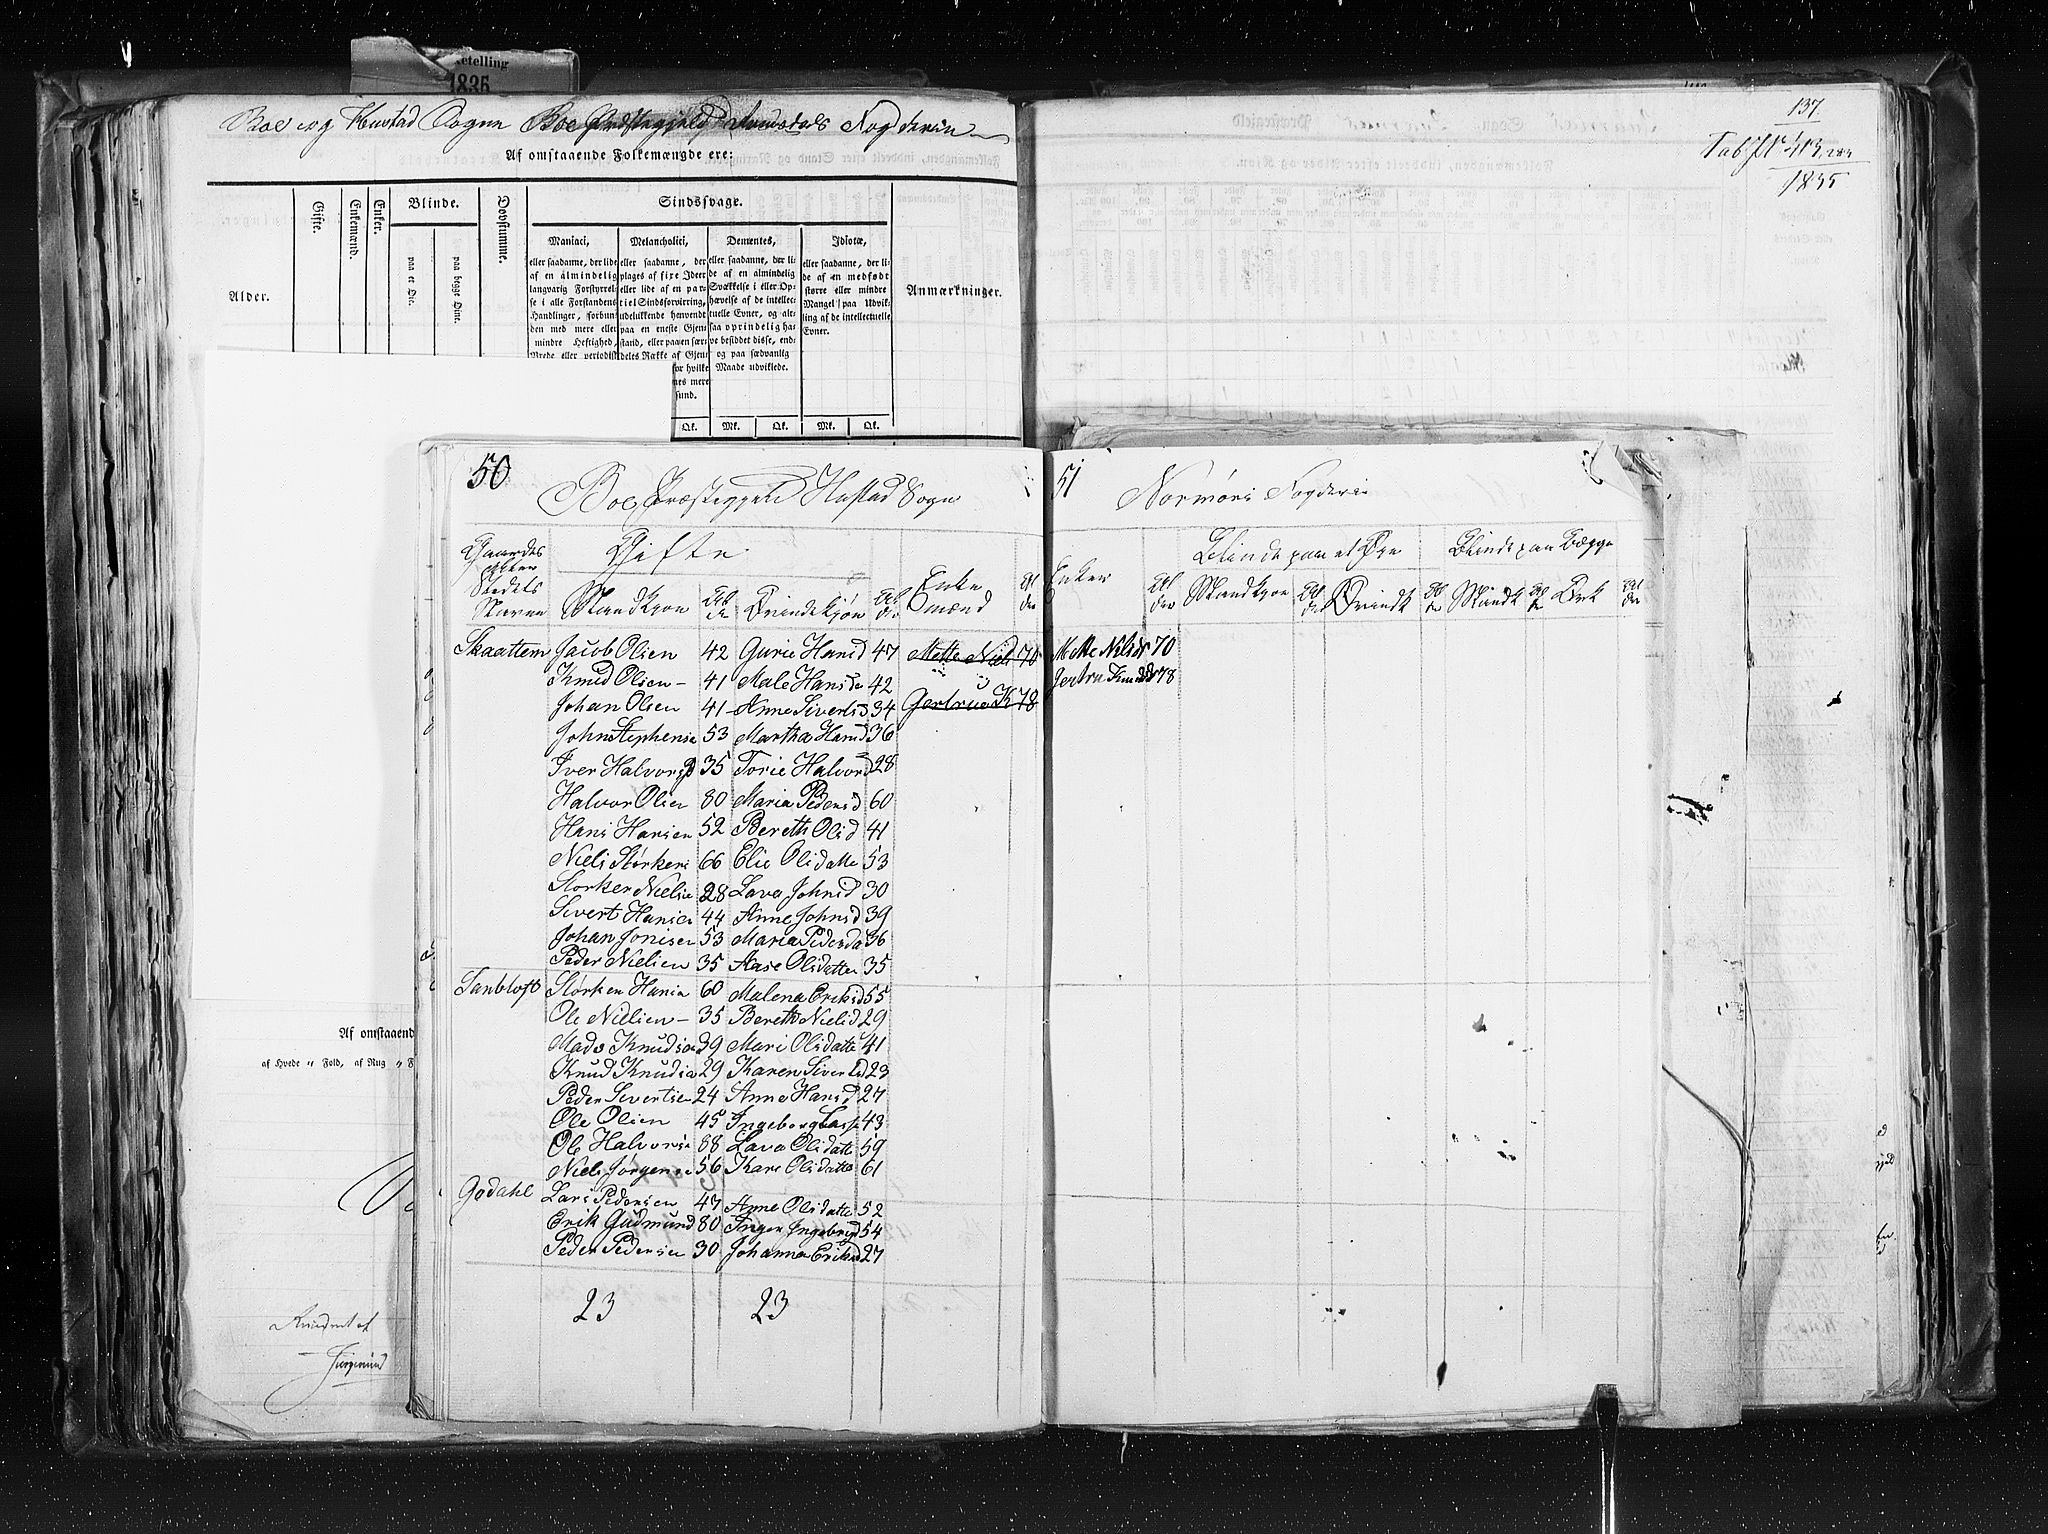 ketelling
1835
Boe og Hustad Sogne Boe Præstegjeld Fogderie
Af omstaaende Folkemængde ere:
Alder.
Gifte.
Enkemænd.
Enker.
Blinde.
paa et Øie.
paa begge Øine.
Døvstumme.
Sindssvage.
Maniaci,
eller saadanne, der lide
af en almindelig
langvarig Forstyrrel-
se i alle Forstandens
Handlinger, forbun-
den med mere eller
mindre Heftighed,
Vrede eller periodisk
Melancholici,
eller saadanne, der
plages af fixe Ideer
eller lide af en par-
tiel Sindsforvirring,
udelukkende henvendt
paa en eneste Gjen-
stand, eller paa en sær-
deles Række af Gjen-
for hvilke
nes mere
sund.
Dementes,
eller saadanne, der li-
de af en almindelig
Svækkelse i eller Op-
hævelse af de intellec-
tuelle Evner, og alt-
saa oprindelig ha-
ve besiddet disse, end-
og paa sædvanlig
Maade udviklede.
Idiotæ,
eller saadanne, der li-
de af en medfødt
større eller mindre
Mangel paa Udvik-
ling af de intellectuelle
Evner.
Anmærkninger.
Qk. Mk. Qk. Mk. Qk.
137
Tab N 413
1835
50
Boe Præstegjeld Hustad Sogn
Gaardes
eller
Stedets
Navne
Gifte
Mandkjøn
Al
der
Qvindekjøn
Al
der
Enke
mænd
Al
der
Skaattem Jacob Olsen 42 Gurie Hansd 47 Mette Niels 70
Knud Olsen - 41 Male Hansda 42
Johan Olsen 41 Anne Sivertsd 34 Gertrue K 78
John Stephense 53 Martha Hansd 36
Iver Halvors 35 Torie Halvord 28
Halvor Olsen 80 Maria Pedersd 60
Hans Hansen 52 Bereth Olsd 41
Niels Størkers 66 Elie Olsdatte 53
Størker Nielse 28 Lava Johnsd 30
Sivert Hansen 44 Anne Johnsd 39
Johan Jonsen 53 Maria Pedersda 36
Peder Nielsen 35 Aase Olsdatter 35
Sanbloft Størken Hansn 60 Malena Eriksd 55
Ole Nielsen - 35 Bereth Nielsd 29
Mads Knudsen 39 Mari Olsdatte 41
Knud Knudsen 29 Karen Siverts 23
Peder Severtsen 24 Anne Hansd 27
Ole Olsen 45 Ingeborg Lasse 43
Ole Halvorse 88 Lava Olsdatte 59
Niels Jørgense 56 Kari Olsdatte 61
Godahl Lars Pedersen 47 Anne Olsdatte 52
Erik Gudmund 80 Inger Ingebrigd 54
Peder Pedersen 30 Johanna Eriksd 27
23 23
51
Normøri Fogderie
Enker
Al
der
Blinde paa et Øye
Mandkjøn
Al
der
Qvindk
Al
der
Blinde paa Begge
Mandk
Al
der
Qvk
Al
der
Mette Nilsdr 70
Gertru Knudsdr 78
Af omstaaend
af Hvede „ Fold, af Rug „ F
Revideret af